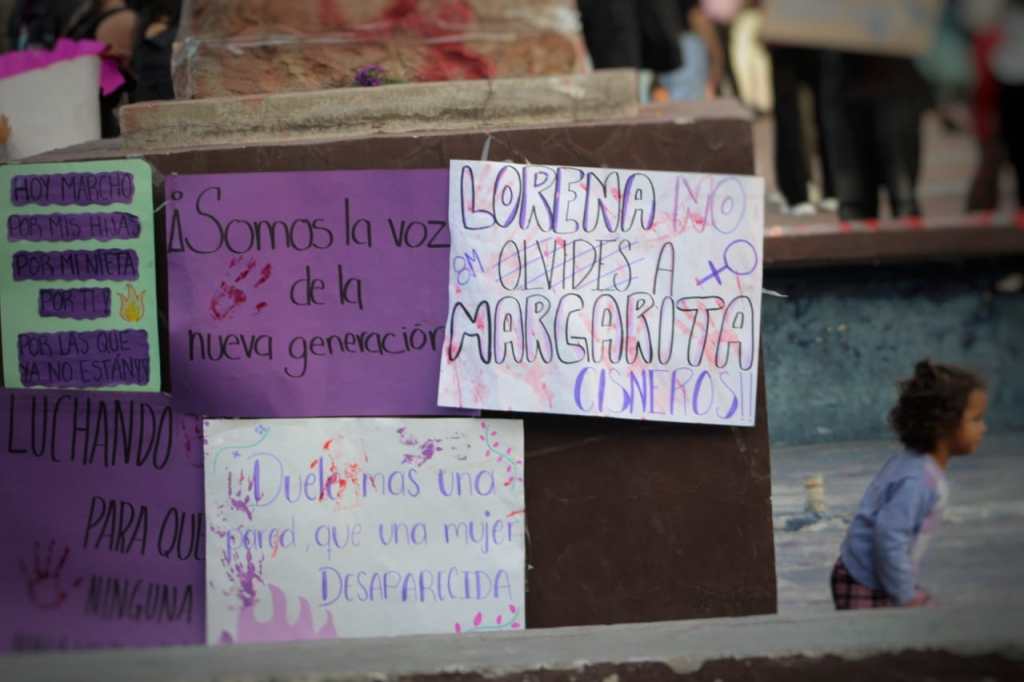 HOY MARCHO
POR MIS HIJAS
POR MI NIETA
POR TI!
POR LAS QUE
YA NO ESTÁN!!
¡Somos la voz
de la
nueva generación
LORENA NO
8M OLVIDES A
MARGARITA
CISNEROS!!
LUCHANDO
PARA QUE
NINGUNA
¡Duele mas una
pared, que una mujer
DESAPARECIDA